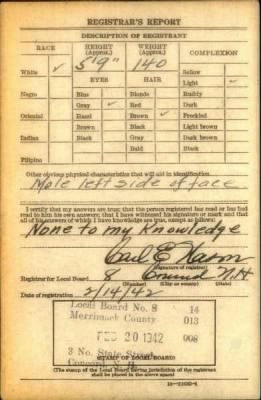 REGISTRAR'S REPORT
DESCRIPTION OF REGISTRANT
RACE HEIGHT (Approx.) WEIGHT (Approx.) COMPLEXION
White ✓ 5'9" 140 Sallow
EYES HAIR Light ✓
Negro Blue Blonde Ruddy
Gray ✓ Red Dark
Oriental Hazel Brown ✓ Freckled
Brown Black Light brown
Indian Black Gray Dark brown
Bald Black
Filipino
Other obvious physical characteristics that will aid in identification
Mole left side of face
I certify that my answers are true; that the person registered has read or has had
read to him his own answers; that I have witnessed his signature or mark and that
all of his answers of which I have knowledge are true, except as follows:
None to my Knowledge
Carl E
(Signature of registrar)
Registrar for Local Board 8 N H
(Number) (City or county) (State)
Date of registration 2/14/42
Local Board No. 8 14
Merrimack County 013
FEB 20 1942 008
3 No. State Street
Concord, N. H.
STAMP OF LOCAL BOARD
(The stamp of the Local Board having jurisdiction of the registrant
shall be placed in the above space.)